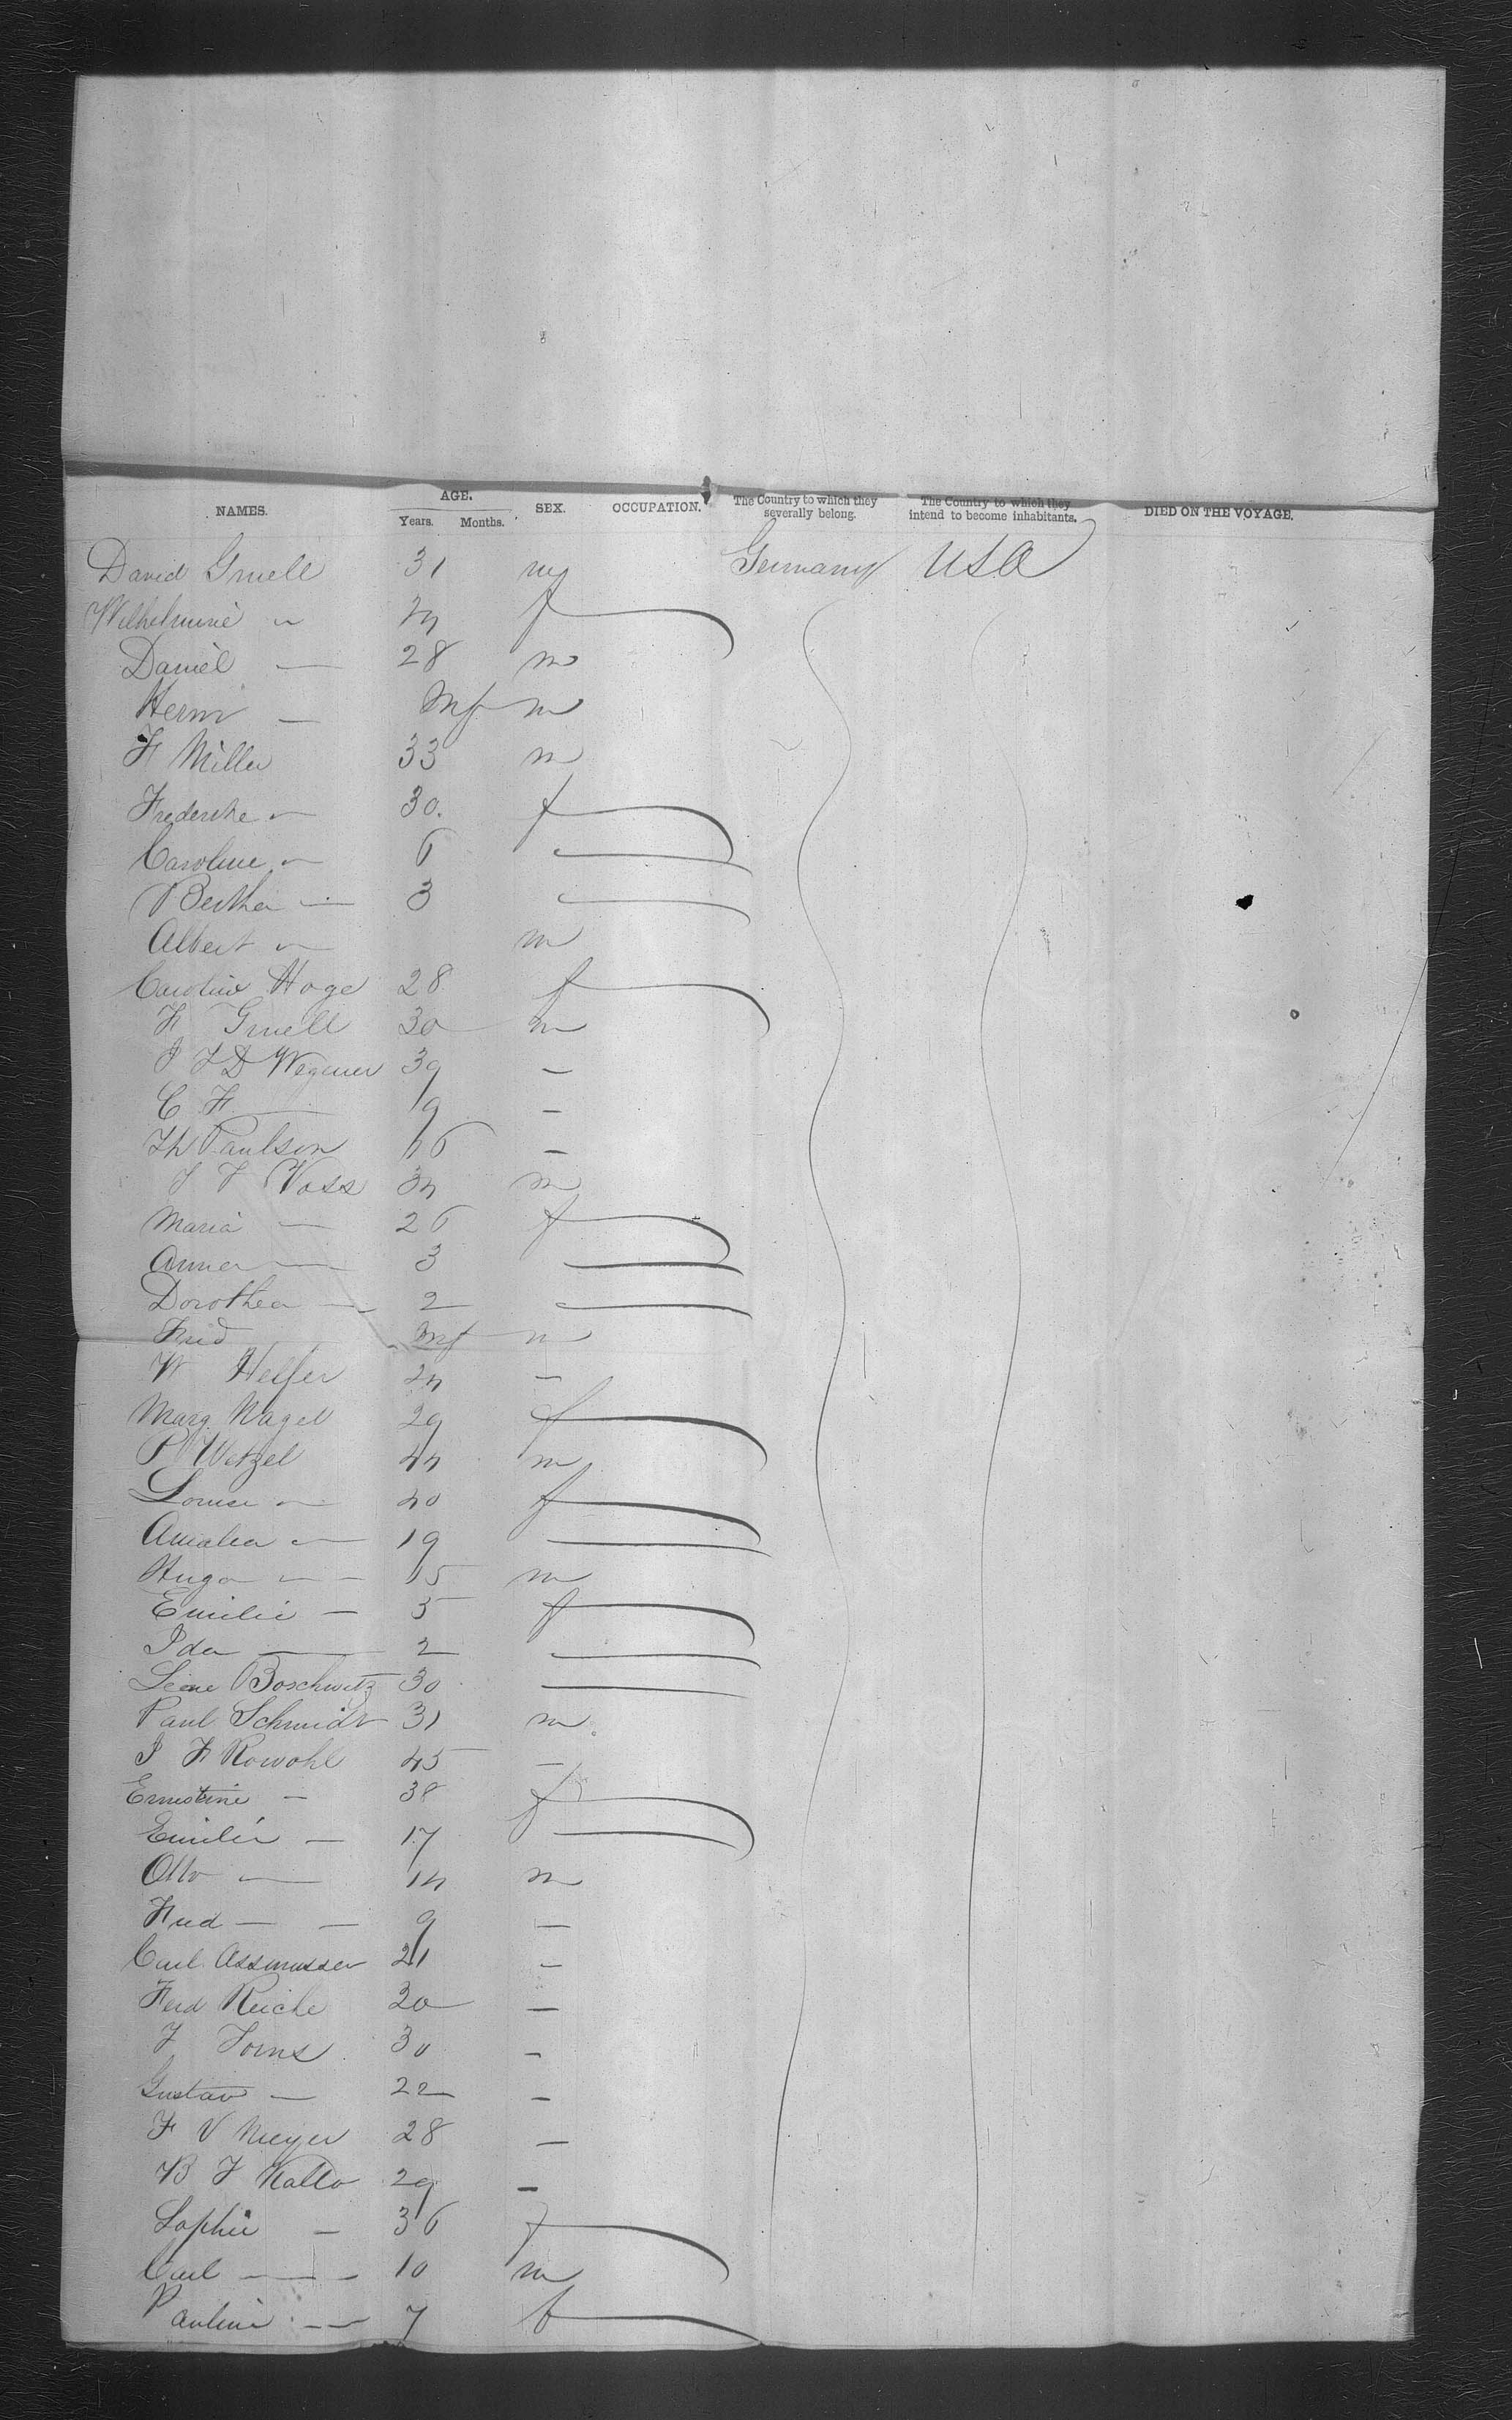 NAMES. AGE. Years. Months. SEX. OCCUPATION. The Country to which they severally belong. The Country to which they intend to become inhabitants. DIED ON THE VOYAGE.
David Gruell 31 m Germany USA
Wilhelmine " 24 f
Daniel — 28 m
Herm — Inf m
F Miller 33 m
Frederike " 30. f
Caroline " 6
Bertha — 3
Albert " m
Caroline Hoge 28 f
F Gruell 30 m
J D Wegener 39 —
C F — 19 —
Th Paulson 16 —
J F Voss 34 m
Maria — 26 f
Anna — 3
Dorothea — 2
Fried Inf m
W Helfer 24 —
Marg Nagel 29 f
P Wetzel 44 m
Louise " 40 f
Amalia " 19
Hugo " — 15 m
Emilie — 5 f
Ida — 2
Boschwitz 30
Paul Schmidt 31 m
J F Rowohl 45 —
Ernestine — 38 f
Emilie — 17
Otto — 14 m
— — 9 —
Carl Assmussen 21 —
Ferd Reiche 20 —
J Jorns 30 —
Gustav — 22 —
F V Meyer 28 —
B J 29 —
Sophie — 36 f
Carl — — 10 m
Pauline — — 7 f